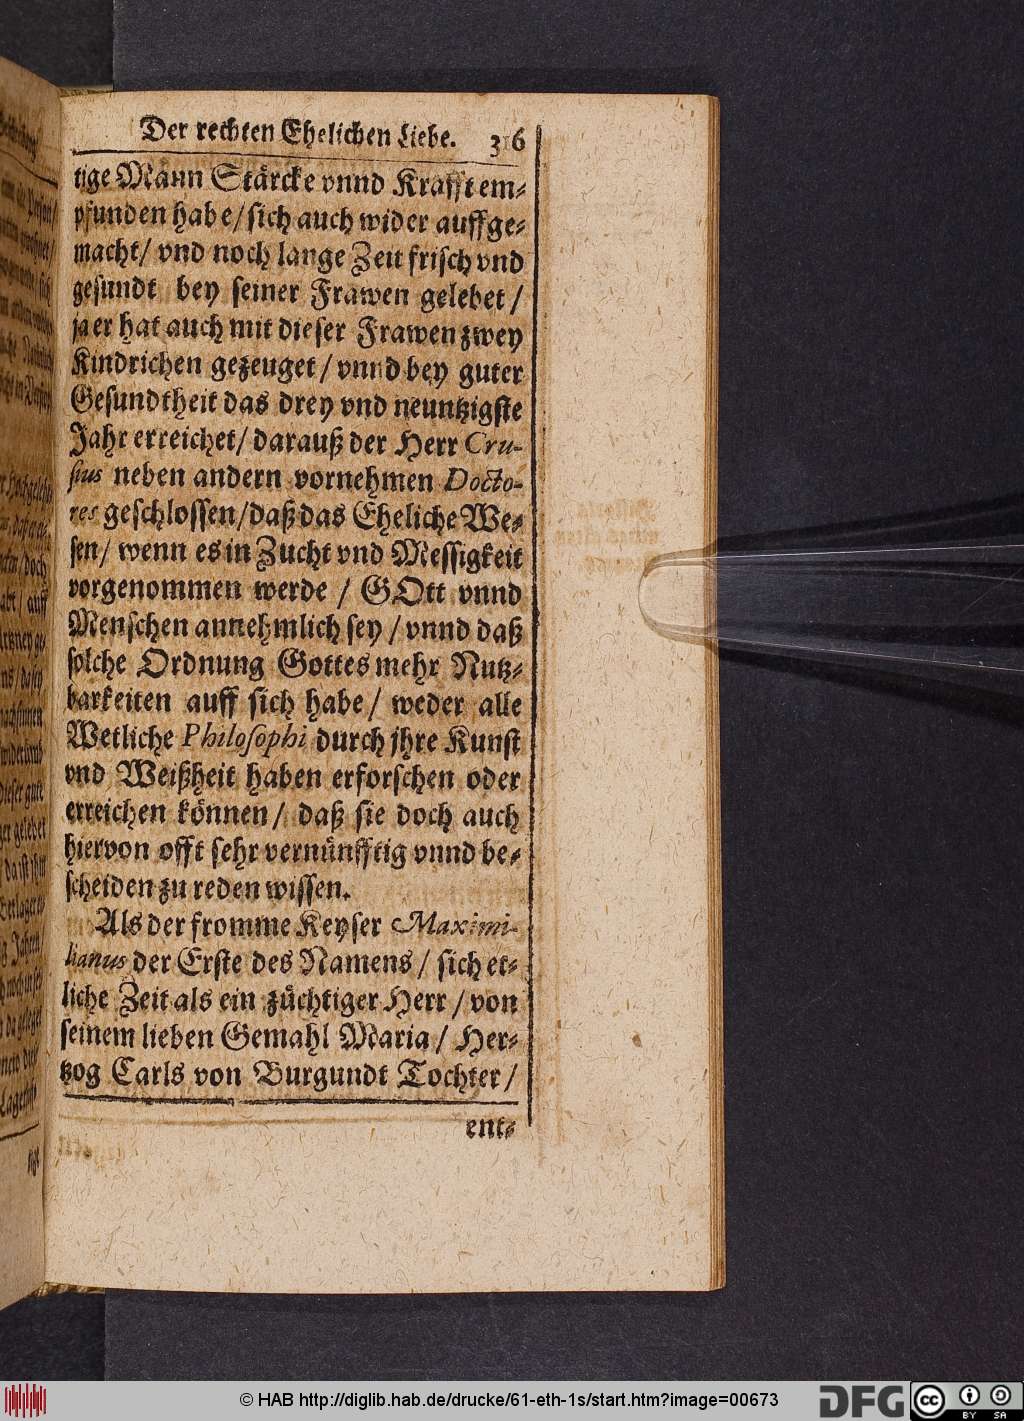 Der rechten Ehelichen Liebe. 316
tige Mann Stärcke vnnd Krafft em-
pfunden habe/ sich auch wider auffge-
macht/ vnd noch lange Zeit frisch vnd
gesundt bey seiner Frawen gelebet/
ja er hat auch mit dieser Frawen zwey
Kindrichen gezeuget/ vnnd bey guter
Gesundtheit das drey vnd neuntzigste
Jahr erreichet/ darauß der Herr Cru-
sius neben andern vornehmen Docto-
res geschlossen/ daß das Eheliche We-
sen/ wenn es in Zucht vnd Messigkeit
vorgenommen werde/ GOtt vnnd
Menschen annehmlich sey/ vnnd daß
solche Ordnung Gottes mehr Nutz-
barkeiten auff sich habe/ weder alle
Wetliche Philosophi durch jhre Kunst
vnd Weißheit haben erforschen oder
erreichen können/ daß sie doch auch
hiervon offt sehr vernünfftig vnnd be-
scheiden zu reden wissen.
Als der fromme Keyser Maximi-
lianus der Erste des Namens/ sich et-
liche Zeit als ein züchtiger Herr/ von
seinem lieben Gemahl Maria/ Her-
tzog Carls von Burgundt Tochter/
ent-
© HAB http://diglib.hab.de/drucke/61-eth-1s/start.htm?image=00673
DFG
cc
BY SA